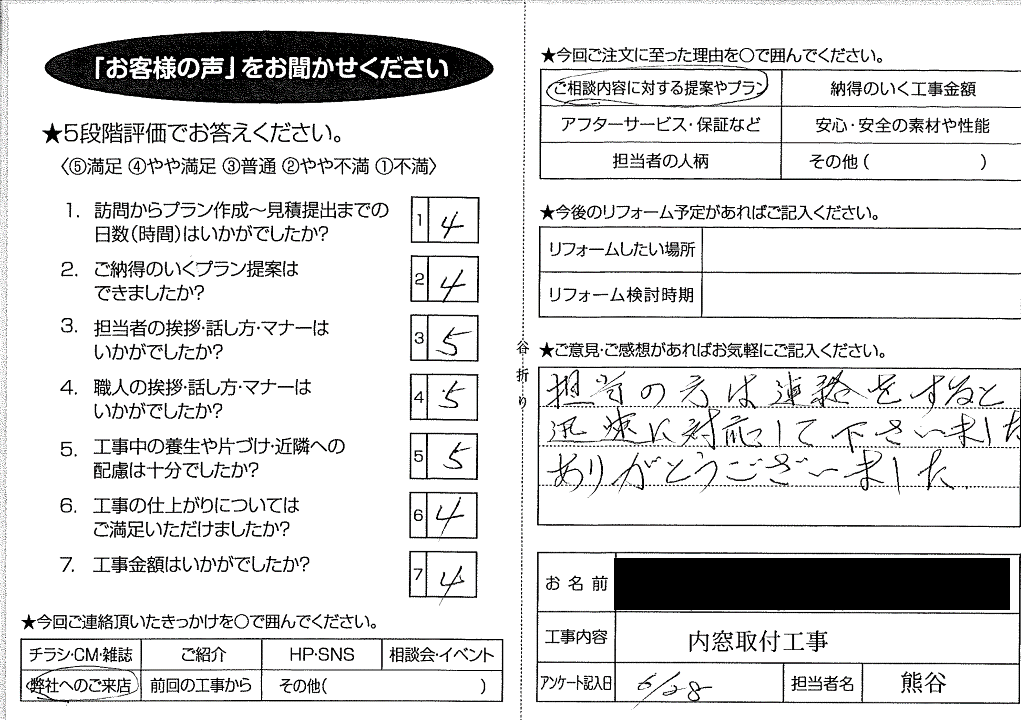 「お客様の声」をお聞かせください
★5段階評価でお答えください。
〈⑤満足 ④やや満足 ③普通 ②やや不満 ①不満〉
1. 訪問からプラン作成～見積提出までの
日数(時間)はいかがでしたか?
1 4
2. ご納得のいくプラン提案は
できましたか?
2 4
3. 担当者の挨拶・話し方・マナーは
いかがでしたか?
3 5
4. 職人の挨拶・話し方・マナーは
いかがでしたか?
4 5
5. 工事中の養生や片づけ・近隣への
配慮は十分でしたか?
5 5
6. 工事の仕上がりについては
ご満足いただけましたか?
6 4
7. 工事金額はいかがでしたか?
7 4
★今回ご連絡頂いたきっかけを○で囲んでください。
チラシ・CM・雑誌 ご紹介 HP・SNS 相談会・イベント
弊社へのご来店 前回の工事から その他( )
谷折り
★今回ご注文に至った理由を○で囲んでください。
ご相談内容に対する提案やプラン 納得のいく工事金額
アフターサービス・保証など 安心・安全の素材や性能
担当者の人柄 その他( )
★今後のリフォーム予定があればご記入ください。
リフォームしたい場所
リフォーム検討時期
★ご意見・ご感想があればお気軽にご記入ください。
担当の方は連絡をすると
迅速に対応して下さいました
ありがとうございました.
お名前
工事内容 内窓取付工事
アンケート記入日 6/28 担当者名 熊谷